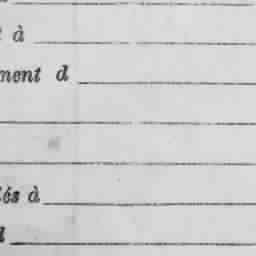 à
ment d
és à